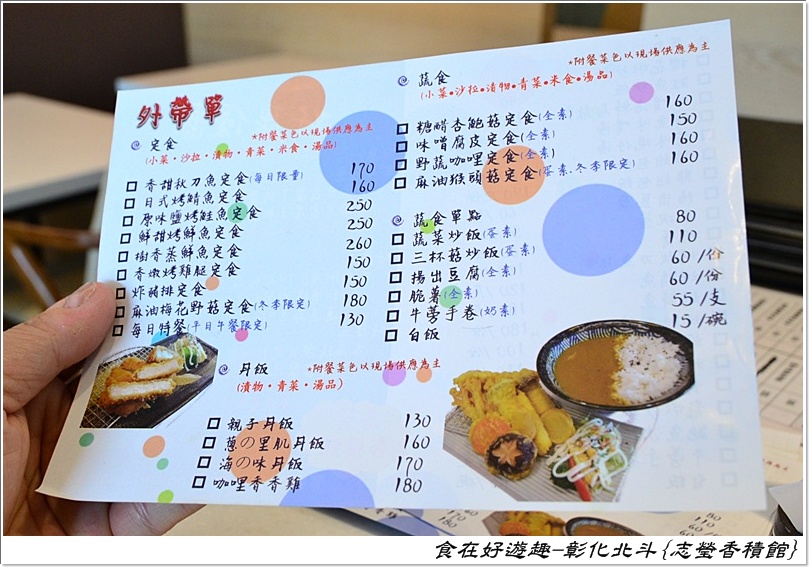 外帶單
定食
*附餐菜色以現場供應為主
(小菜•沙拉•漬物•青菜•米食•湯品)
香甜秋刀魚定食(每日限量) 170
日式烤鯖魚定食 160
原味鹽烤鮭魚定食 250
鮮甜烤鮮魚定食 250
樹香蒸鮮魚定食 260
香嫩烤雞腿定食 150
炸豬排定食 150
麻油梅花野菇定食(冬季限定) 180
每日特餐(平日午餐限定) 130
丼飯
*附餐菜色以現場供應為主
(漬物•青菜•湯品)
親子丼飯 130
蔥の里肌丼飯 160
海の味丼飯 170
咖哩香香雞 180
蔬食
*附餐菜色以現場供應為主
(小菜•沙拉•漬物•青菜•米食•湯品)
糖醋杏鮑菇定食(全素) 160
味噌腐皮定食(全素) 150
野蔬咖哩定食(全素) 160
麻油猴頭菇定食(蛋素.冬季限定) 160
蔬食單點
蔬菜炒飯(蛋素) 80
三杯菇炒飯(蛋素) 110
揚出豆腐(全素) 60/份
脆薯(全素) 60/份
牛蒡手卷(奶素) 55/支
白飯 15/碗
食在好遊趣-彰化北斗{志瑩香積館}